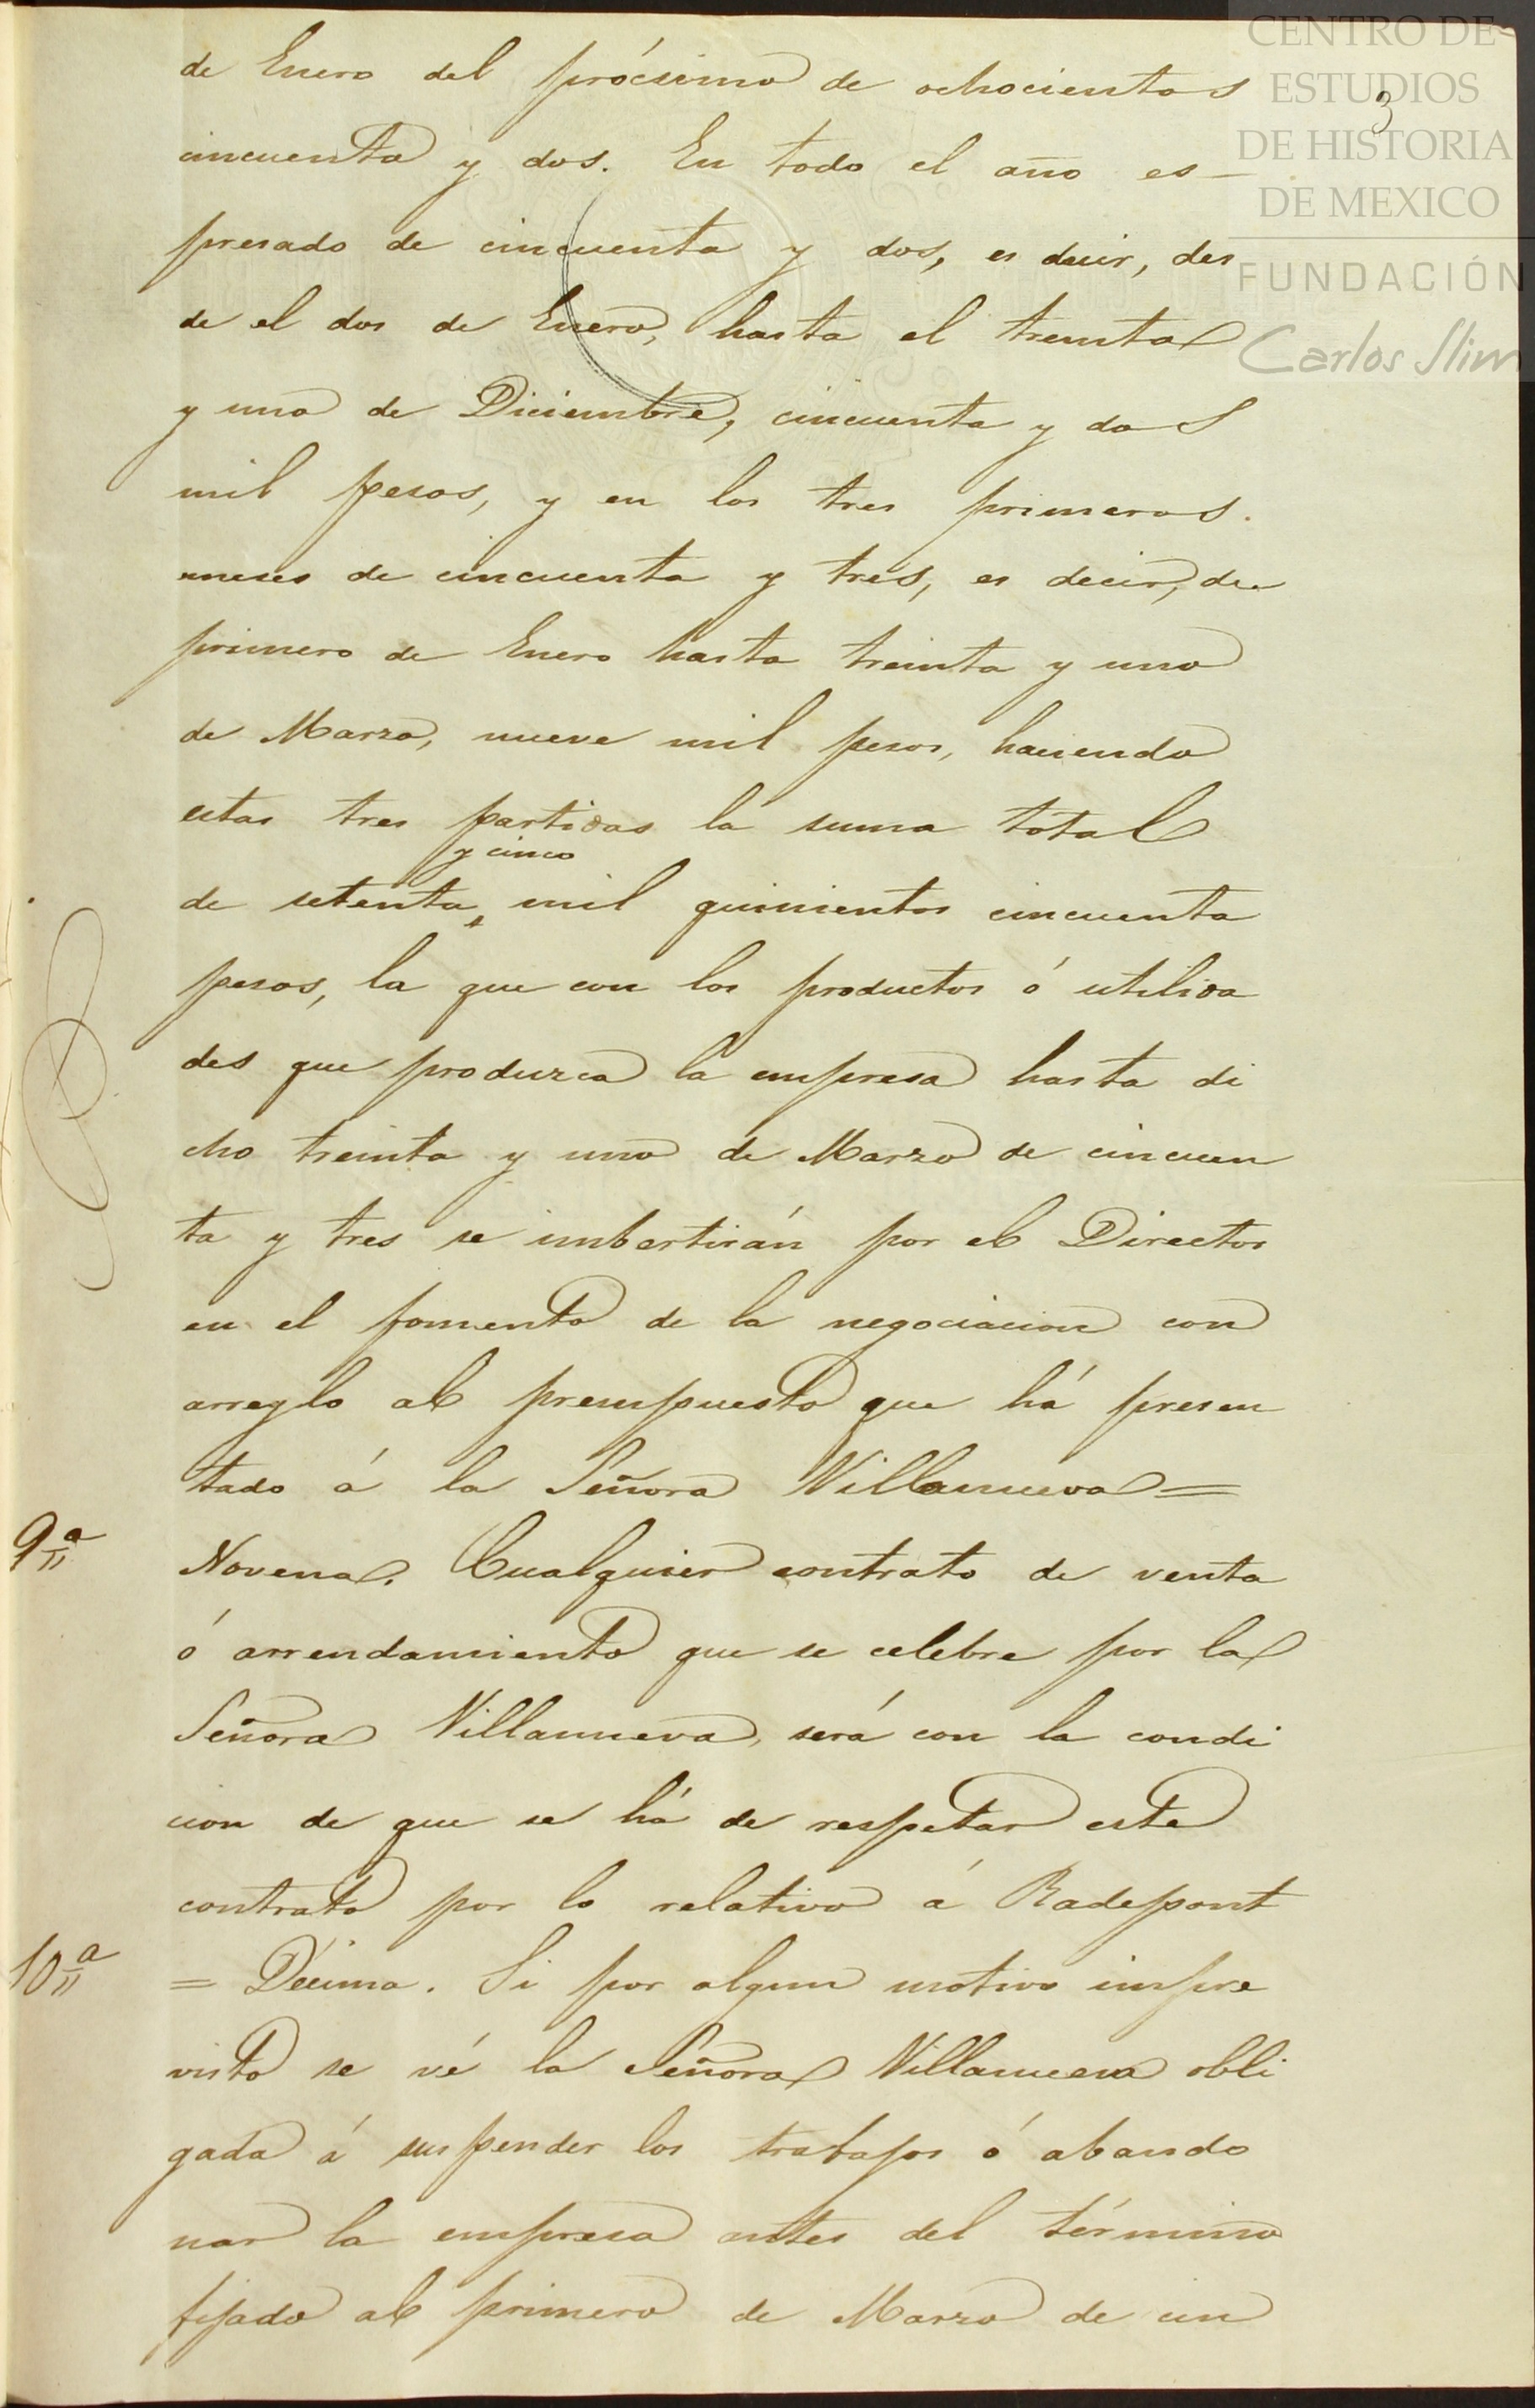 CENTRO DE
ESTUDIOS
DE HISTORIA
DE MEXICO
FUNDACIÓN
Carlos Slim
3
de Enero del prócsimo de ochocientos
cincuenta y dos. En todo el año es-
presado de cincuenta y dos, es decir, des
de el dos de Enero, hasta el treinta
y uno de Diciembre, cincuenta y dos
mil pesos, y en los tres primeros.
meses de cincuenta y tres, es decir, de
primero de Enero hasta treinta y uno
de Marzo, nueve mil pesos, haciendo
estas tres partidas la suma total
y cinco
de setenta mil quinientos cincuenta
pesos, la que con los productos ó utilida
des que produzca la empresa hasta di
cho treinta y uno de Marzo de cincuen
ta y tres se imbertirán por el Director
en el fomento de la negociacion con
arreglo al presupuesto que há presen
tado á la Señora Villanueva =
9ª Novena. Cualquier contrato de venta
ó arrendamiento que se celebre por la
Señora Villanueva, será con la condi
cion de que se há de respetar este
contrato por lo relativo á Radepont
10ª = Décima. Si por algun motivo impre
visto se vé la Señora Villanueva obli
gada á suspender los trabajos ó abando
nar la empresa antes del término
fijado al primero de Marzo de cin